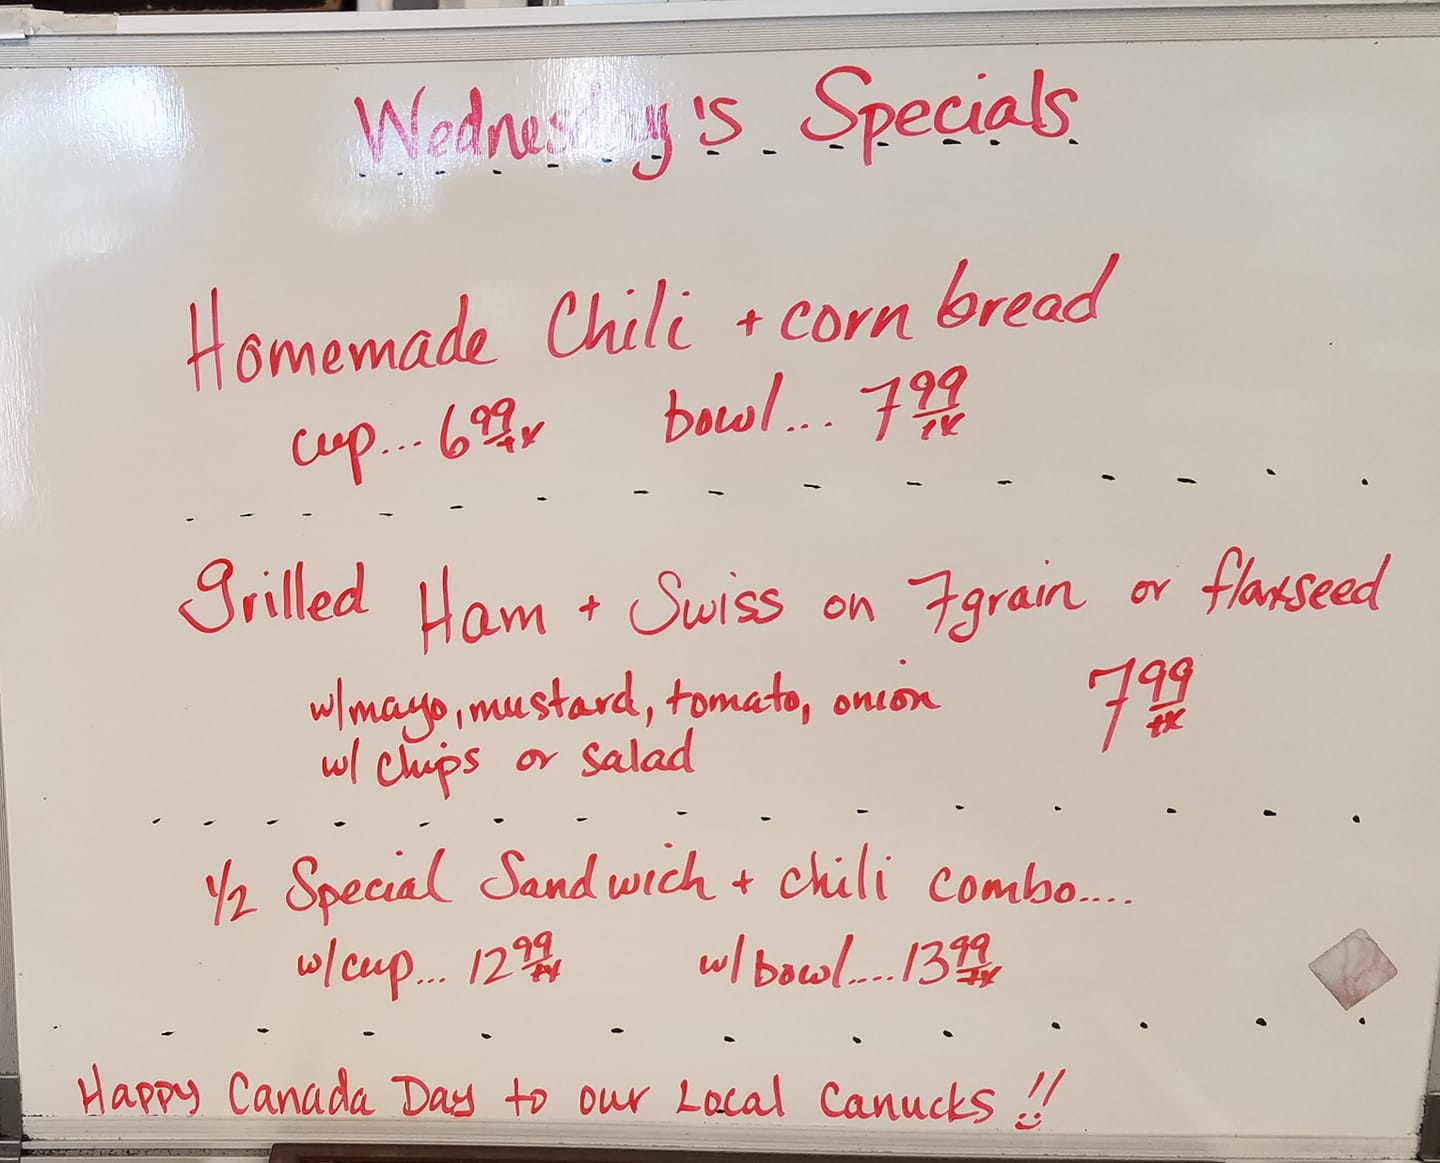 Wednesday's Specials
Homemade Chili + corn bread
cup... 6 99/tx bowl... 7 99/tx
Grilled Ham + Swiss on 7grain or flaxseed
w/mayo, mustard, tomato, onion 7 99/tx
w/ chips or salad
1/2 Special Sandwich + chili combo....
w/cup... 12 99/tx w/bowl.... 13 99/tx
Happy Canada Day to our Local Canucks !!